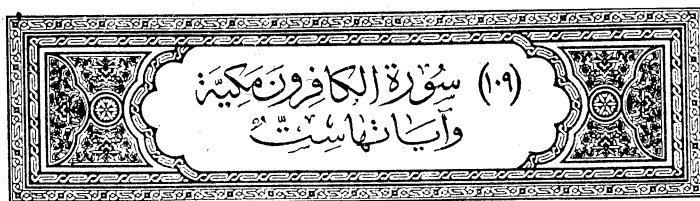 (١٠٩) سُورَة الكافِرون مَكيَّة
وَآيَاتهَا سِتٌّ